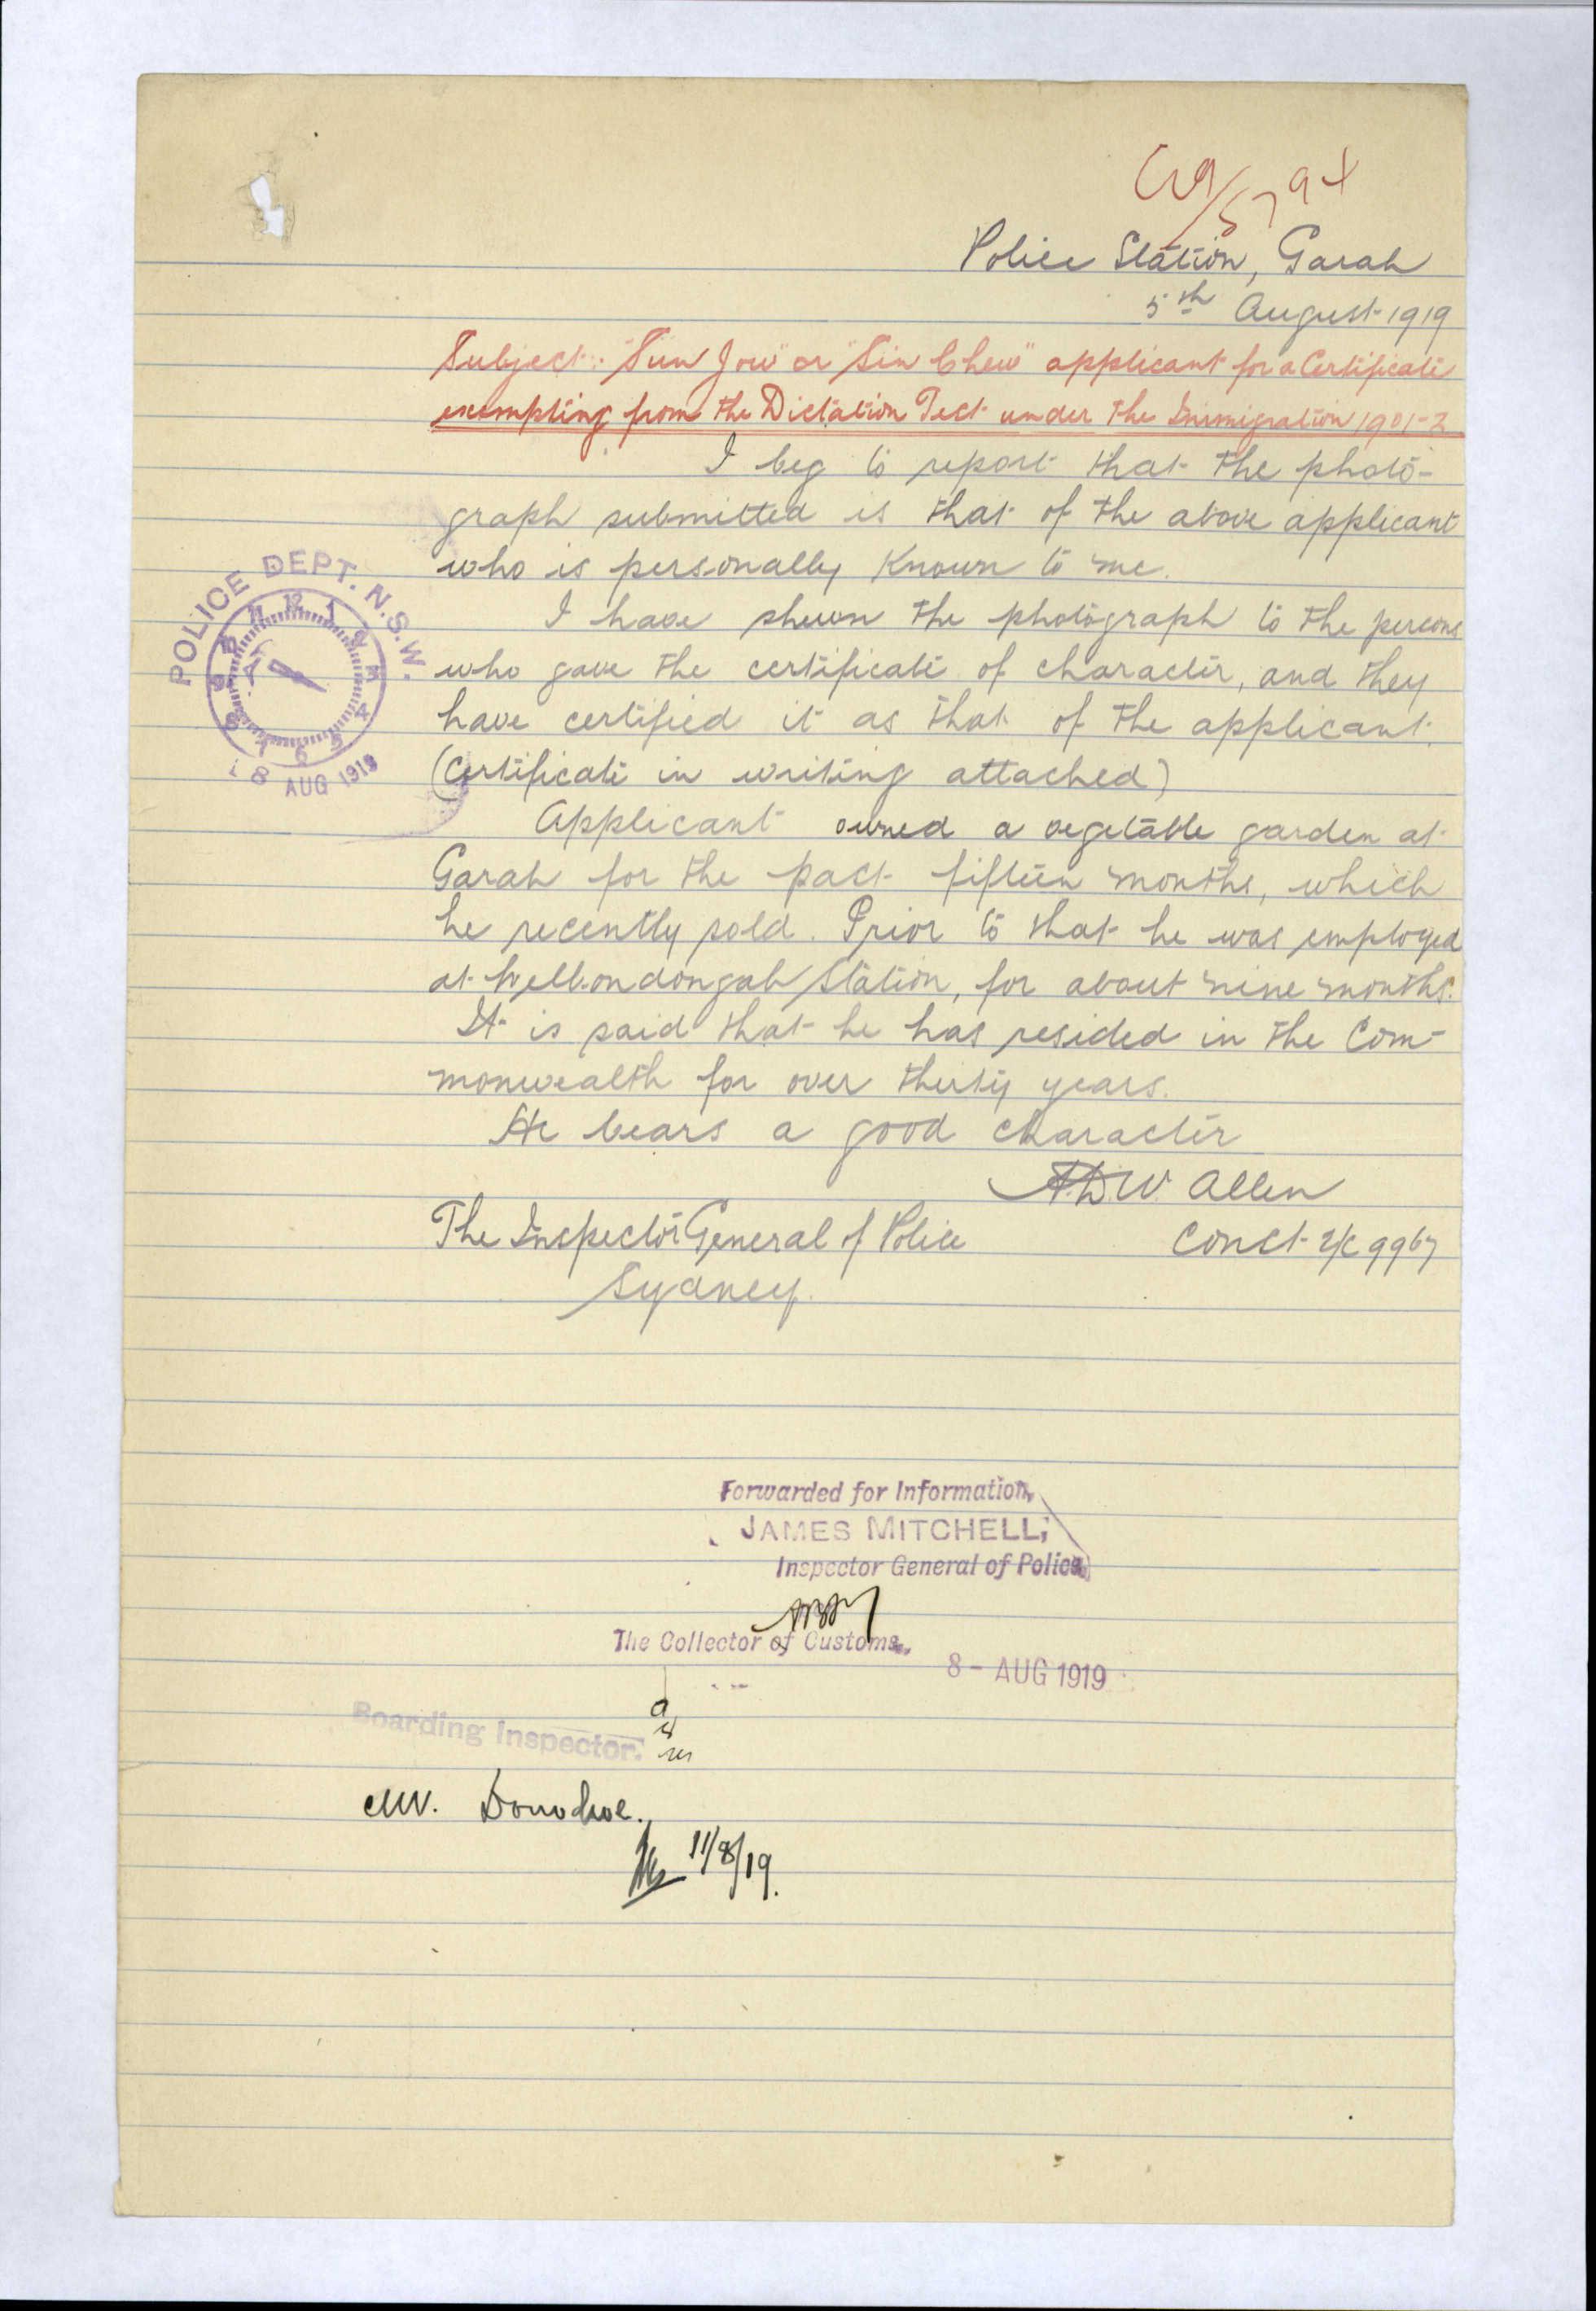 C19/5794
Police Station, Garah
5th August 1919
Subject:- "Sun Jow" or "Sin Chew" applicant for a Certificate
exempting from the Dictation Test under the Immigration 1901-2
I beg to report that the photo-
graph submitted is that of the above applicant
who is personally known to me.
I have shewn the photograph to the persons
who gave the certificate of character, and they
have certified it as that of the applicant.
(Certificate in writing attached)
Applicant owned a vegetable garden at
Garah for the past fifteen months, which
he recently sold. Prior to that he was employed
at Welbondongah Station, for about nine months.
It is said that he has resided in the Com-
monwealth for over thirty years.
He bears a good character
A.D.W. Allen
Const 2/c 9967
The Inspector General of Police
Sydney.
POLICE DEPT. N.S.W.
12 1 2 3 4 5 6 7 8 9 10 11
8 AUG 1919
Forwarded for Information,
JAMES MITCHELL,
Inspector General of Police.
The Collector of Customs.
8 - AUG 1919
Boarding Inspector.
Mr. Donohoe.
11/8/19.